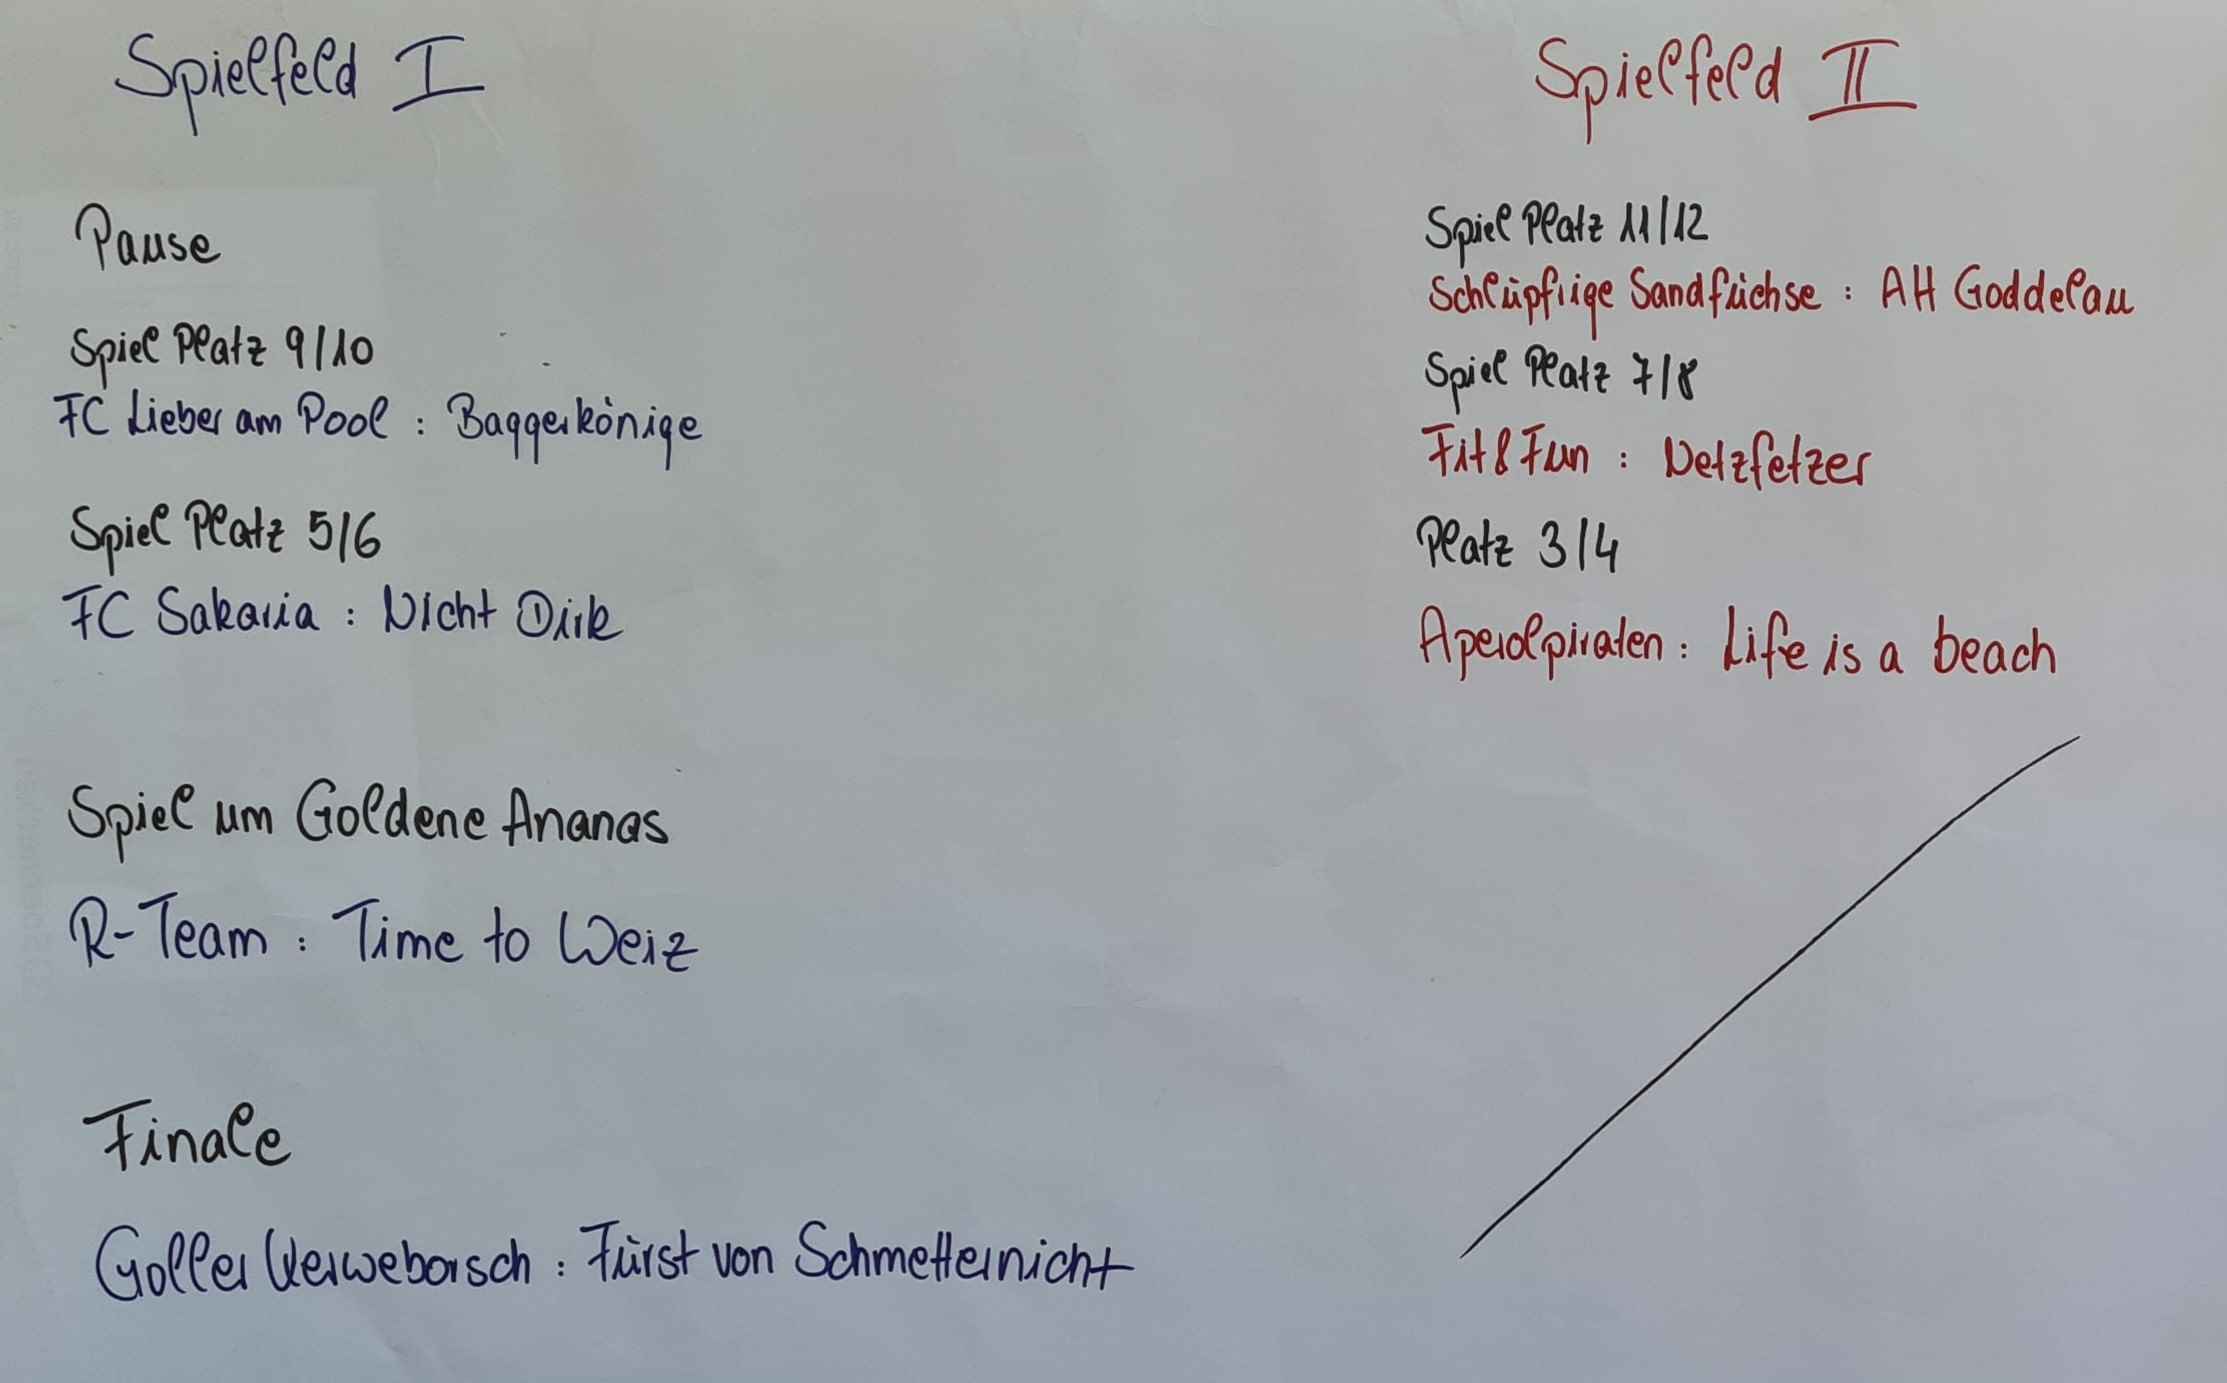 Spielfeld I
Pause
Spiel Platz 9/10
FC Lieber am Pool : Baggerkönige
Spiel Platz 5/6
FC Sakaria : Nicht Dirk
Spiel um Goldene Ananas
R-Team : Time to Weiz
Finale
Goller Werweborsch : Fürst von Schmetternicht
Spielfeld II
Spiel Platz 11/12
Schlüpfrige Sandfüchse : AH Goddelau
Spiel Platz 7/8
Fit & Fun : Netzfetzer
Platz 3/4
Aperolpiraten : Life is a beach